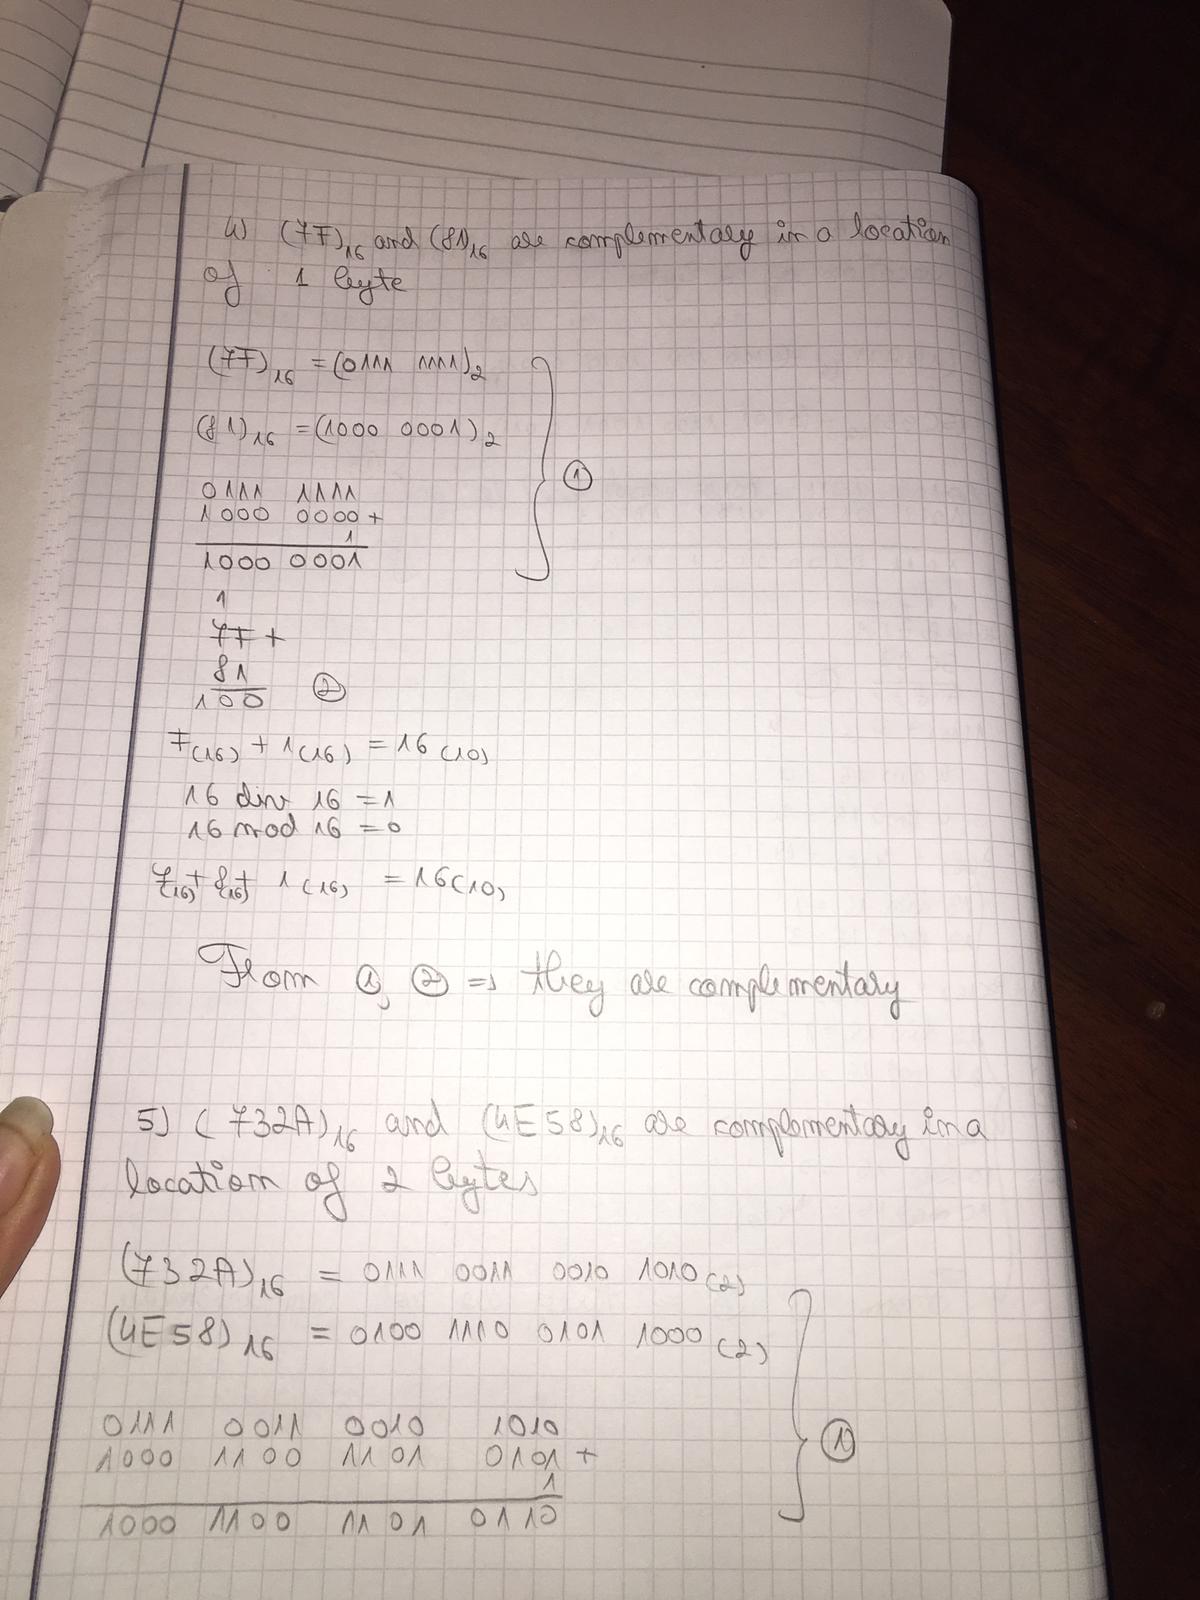 4) (7F)16 and (81)16 are complementary in a location
of 1 byte
(7F)16 = (0111 1111)2
(81)16 = (1000 0001)2
0111 1111
1000 0000 +
1
1000 0001
1
1
7F +
81
100 2
F(16) + 1(16) = 16(10)
16 div 16 = 1
16 mod 16 = 0
7(16) + 8(16) + 1(16) = 16(10)
From 1, 2 => they are complementary
5) (732A)16 and (4E58)16 are complementary in a
location of 2 bytes
(732A)16 = 0111 0011 0010 1010(2)
(4E58)16 = 0100 1110 0101 1000(2)
0111 0011 0010 1010
1000 1100 1101 0101 +
1
1
1000 1100 1101 0110